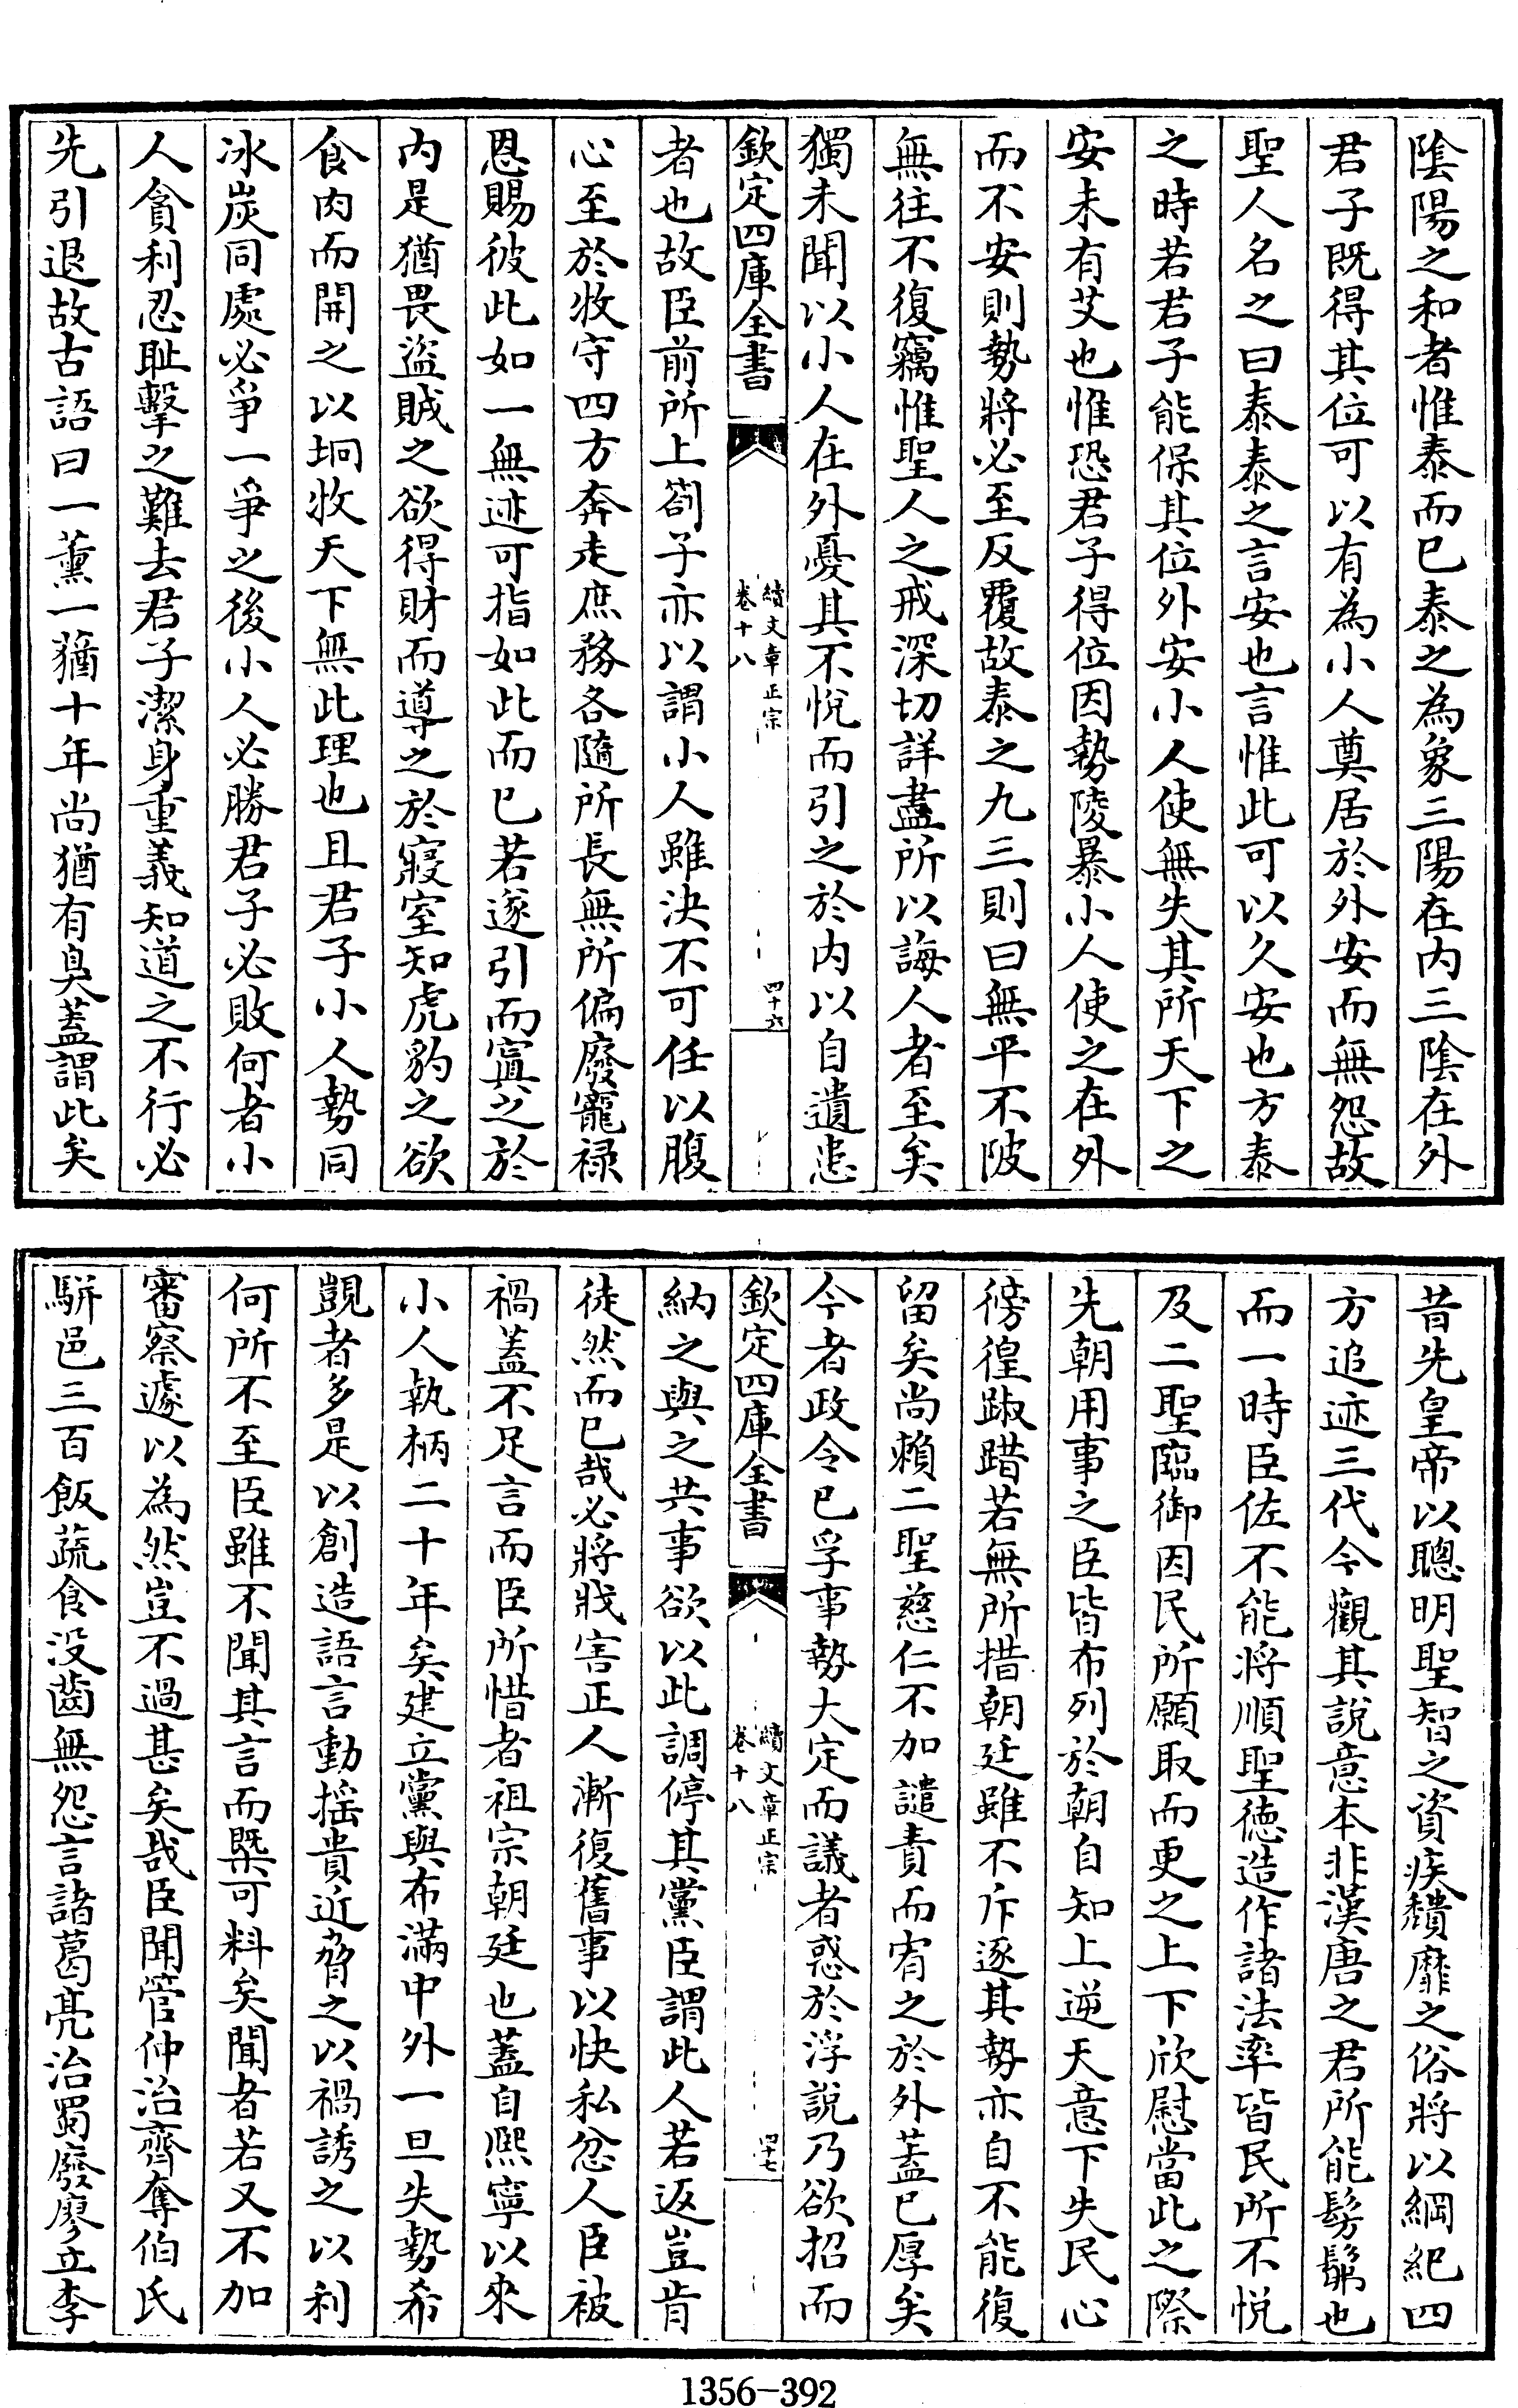 陰陽之和者惟泰而已泰之為象三陽在内三陰在外
君子既得其位可以有為小人奠居於外安而無怨故
聖人名之曰泰泰之言安也言惟此可以久安也方泰
之時若君子能保其位外安小人使無失其所天下之
安未有艾也惟恐君子得位因勢陵暴小人使之在外
而不安則勢將必至反覆故泰之九三則曰無平不陂
無往不復竊惟聖人之戒深切詳盡所以誨人者至矣
獨未聞以小人在外憂其不悅而引之於内以自遺患
欽定四庫全書
續文章正宗
卷十八
四十六
者也故臣前所上劄子亦以謂小人雖決不可任以腹
心至於牧守四方奔走庶務各隨所長無所偏廢寵禄
恩賜彼此如一無迹可指如此而已若遂引而寘之於
内是猶畏盜賊之欲得財而導之於寢室知虎豹之欲
食肉而開之以坰牧天下無此理也且君子小人勢同
冰炭同處必爭一爭之後小人必勝君子必敗何者小
人貪利忍耻擊之難去君子潔身重義知道之不行必
先引退故古語曰一薰一蕕十年尚猶有臭蓋謂此矣
昔先皇帝以聰明聖智之資疾頹靡之俗將以綱紀四
方追迹三代今觀其說意本非漢唐之君所能髣髴也
而一時臣佐不能將順聖徳造作諸法率皆民所不悦
及二聖臨御因民所願取而更之上下欣慰當此之際
先朝用事之臣皆布列於朝自知上逆天意下失民心
徬徨踧踖若無所措朝廷雖不斥逐其勢亦自不能復
留矣尚賴二聖慈仁不加譴責而宥之於外蓋已厚矣
今者政令已孚事勢大定而議者惑於浮說乃欲招而
欽定四庫全書
續文章正宗
卷十八
四十七
納之與之共事欲以此調停其黨臣謂此人若返豈肯
徒然而已哉必將戕害正人漸復舊事以快私忿人臣被
禍蓋不足言而臣所惜者祖宗朝廷也蓋自熙寧以來
小人執柄二十年矣建立黨與布滿中外一旦失勢希
覬者多是以創造語言動搖貴近脅之以禍誘之以利
何所不至臣雖不聞其言而槩可料矣聞者若又不加
審察遽以為然豈不過甚矣哉臣聞管仲治齊奪伯氏
駢邑三百飯蔬食没齒無怨言諸葛亮治蜀廢廖立李
1356-392